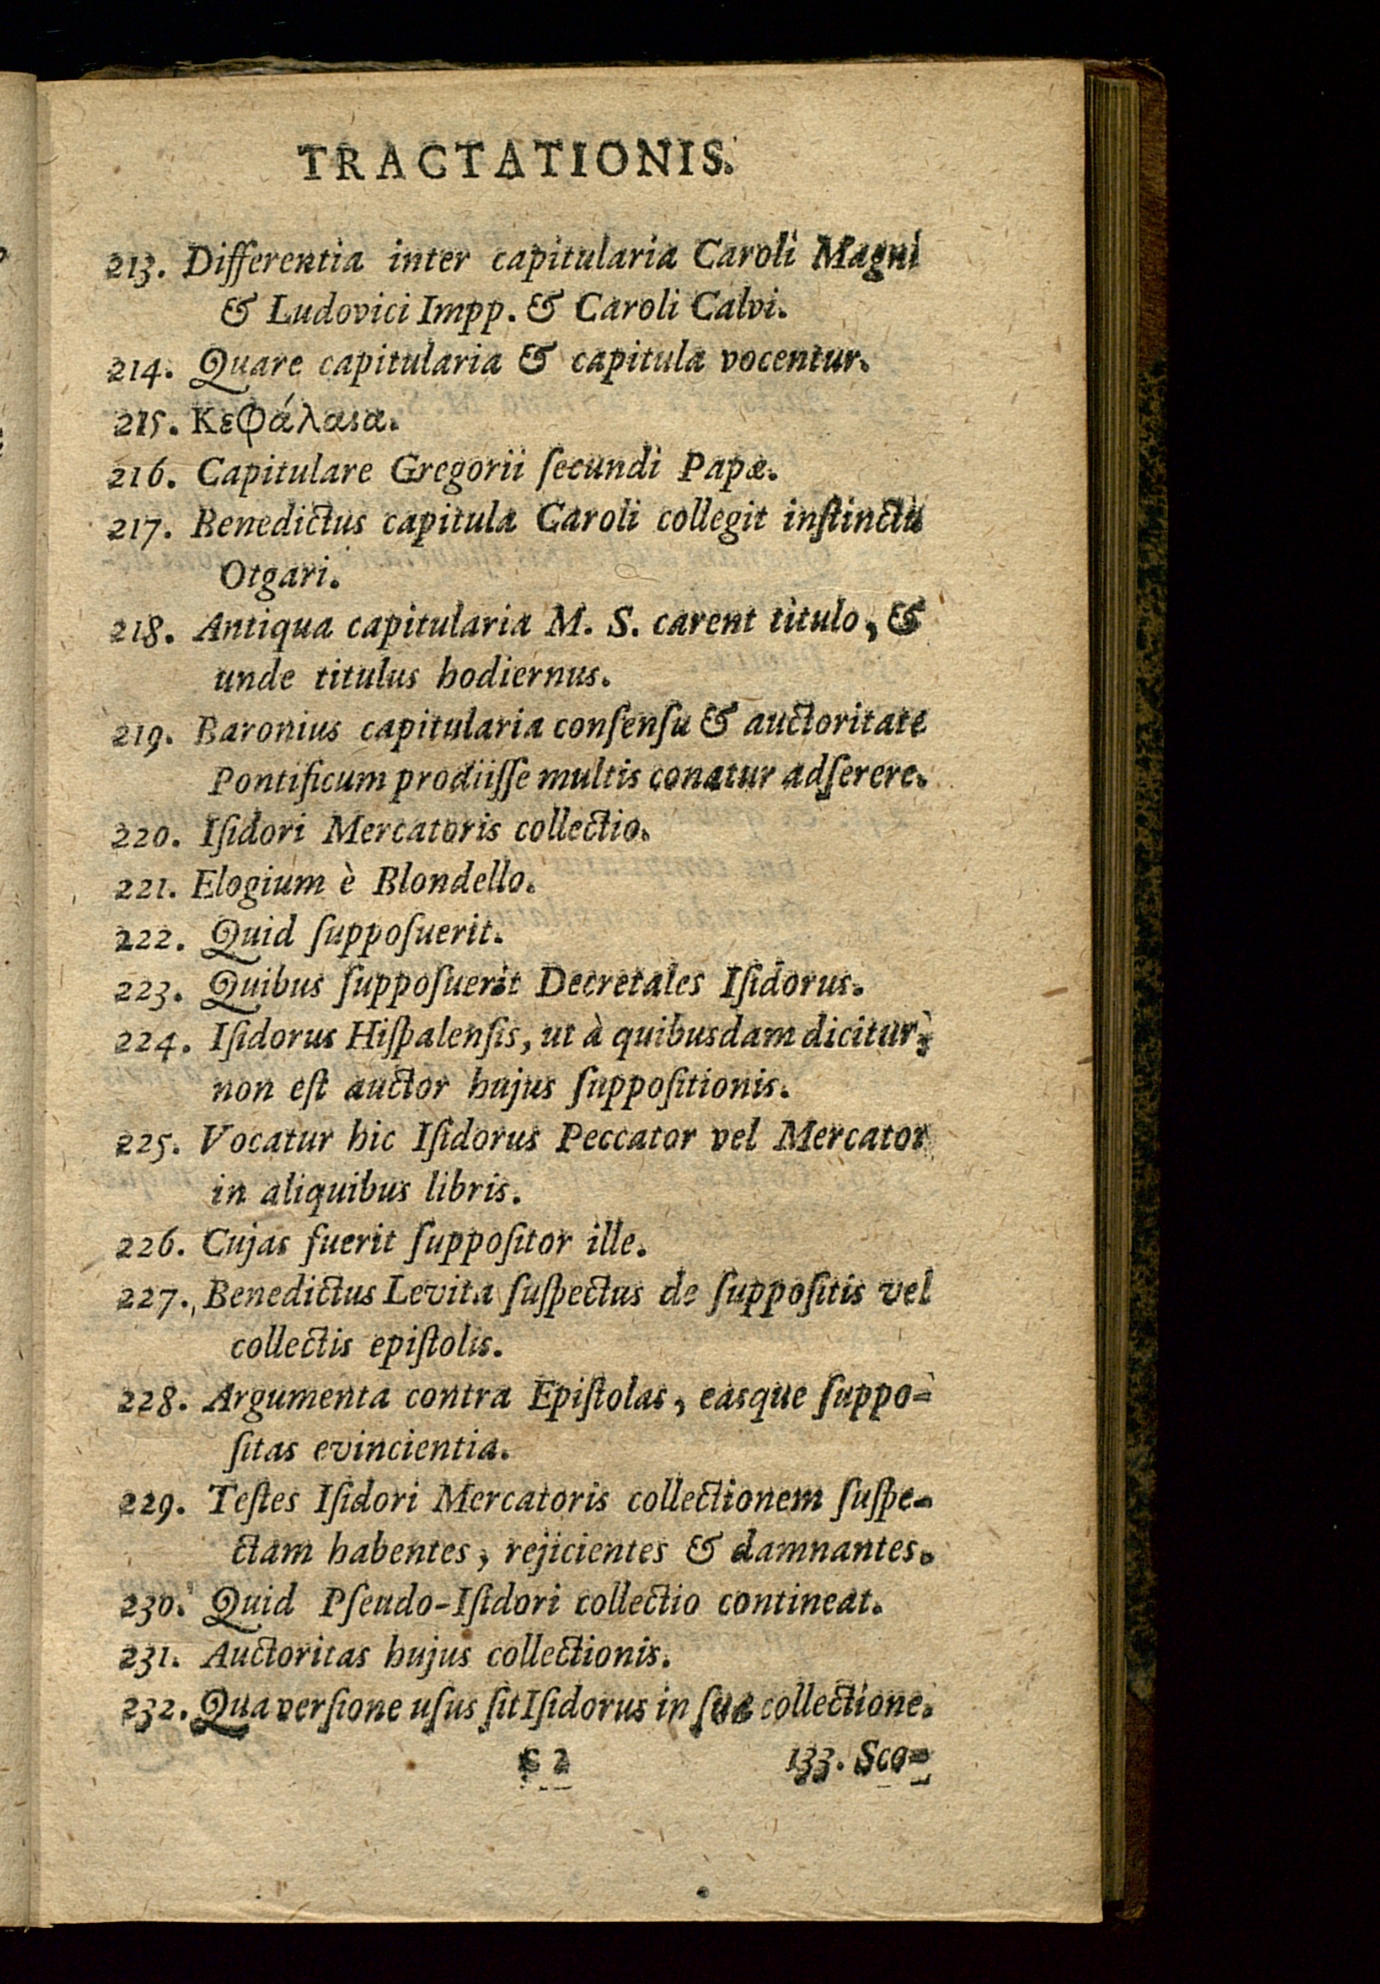 TRACTATIONIS.
213. Differentia inter capitularia Caroli Magni
& Ludovici Impp. & Caroli Calvi.
214. Quare capitularia & capitula vocentur.
215. Κεφάλαια.
216. Capitulare Gregorii ſecundi Papæ.
217. Benedictus capitula Caroli collegit inſtinctu
Otgari.
218. Antiqua capitularia M. S. carent titulo, &
unde titulus hodiernus.
219. Baronius capitularia conſenſu & auctoritate
Pontificum prodiiſſe multis conatur adſerere.
220. Iſidori Mercatoris collectio.
221. Elogium è Blondello.
222. Quid ſuppoſuerit.
223. Quibus ſuppoſuerit Decretales Iſidorus.
224. Iſidorus Hiſpalenſis, ut à quibusdam dicitur,
non eſt auctor hujus ſuppoſitionis.
225. Vocatur hic Iſidorus Peccator vel Mercator
in aliquibus libris.
226. Cujas fuerit ſuppoſitor ille.
227. Benedictus Levita ſuſpectus de ſuppoſitis vel
collectis epiſtolis.
228. Argumenta contra Epiſtolas, easque ſuppo-
ſitas evincientia.
229. Teſtes Iſidori Mercatoris collectionem ſuſpe-
ctam habentes, rejicientes & damnantes.
230. Quid Pſeudo-Iſidori collectio contineat.
231. Auctoritas hujus collectionis.
232. Qua verſione uſus ſit Iſidorus in ſua collectione.
2 133. Sco-